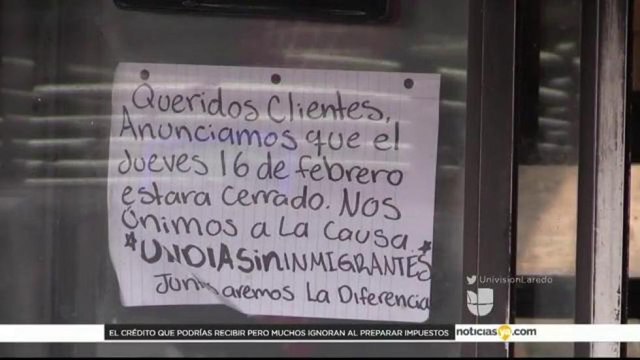 Queridos Clientes,
Anunciamos que el
Jueves 16 de febrero
estara cerrado. Nos
Unimos a La Causa.
*UNDIASinINMIGRANTES*
La Diferencia
UnivisionLaredo
EL CRÉDITO QUE PODRÍAS RECIBIR PERO MUCHOS IGNORAN AL PREPARAR IMPUESTOS
noticiasya.com